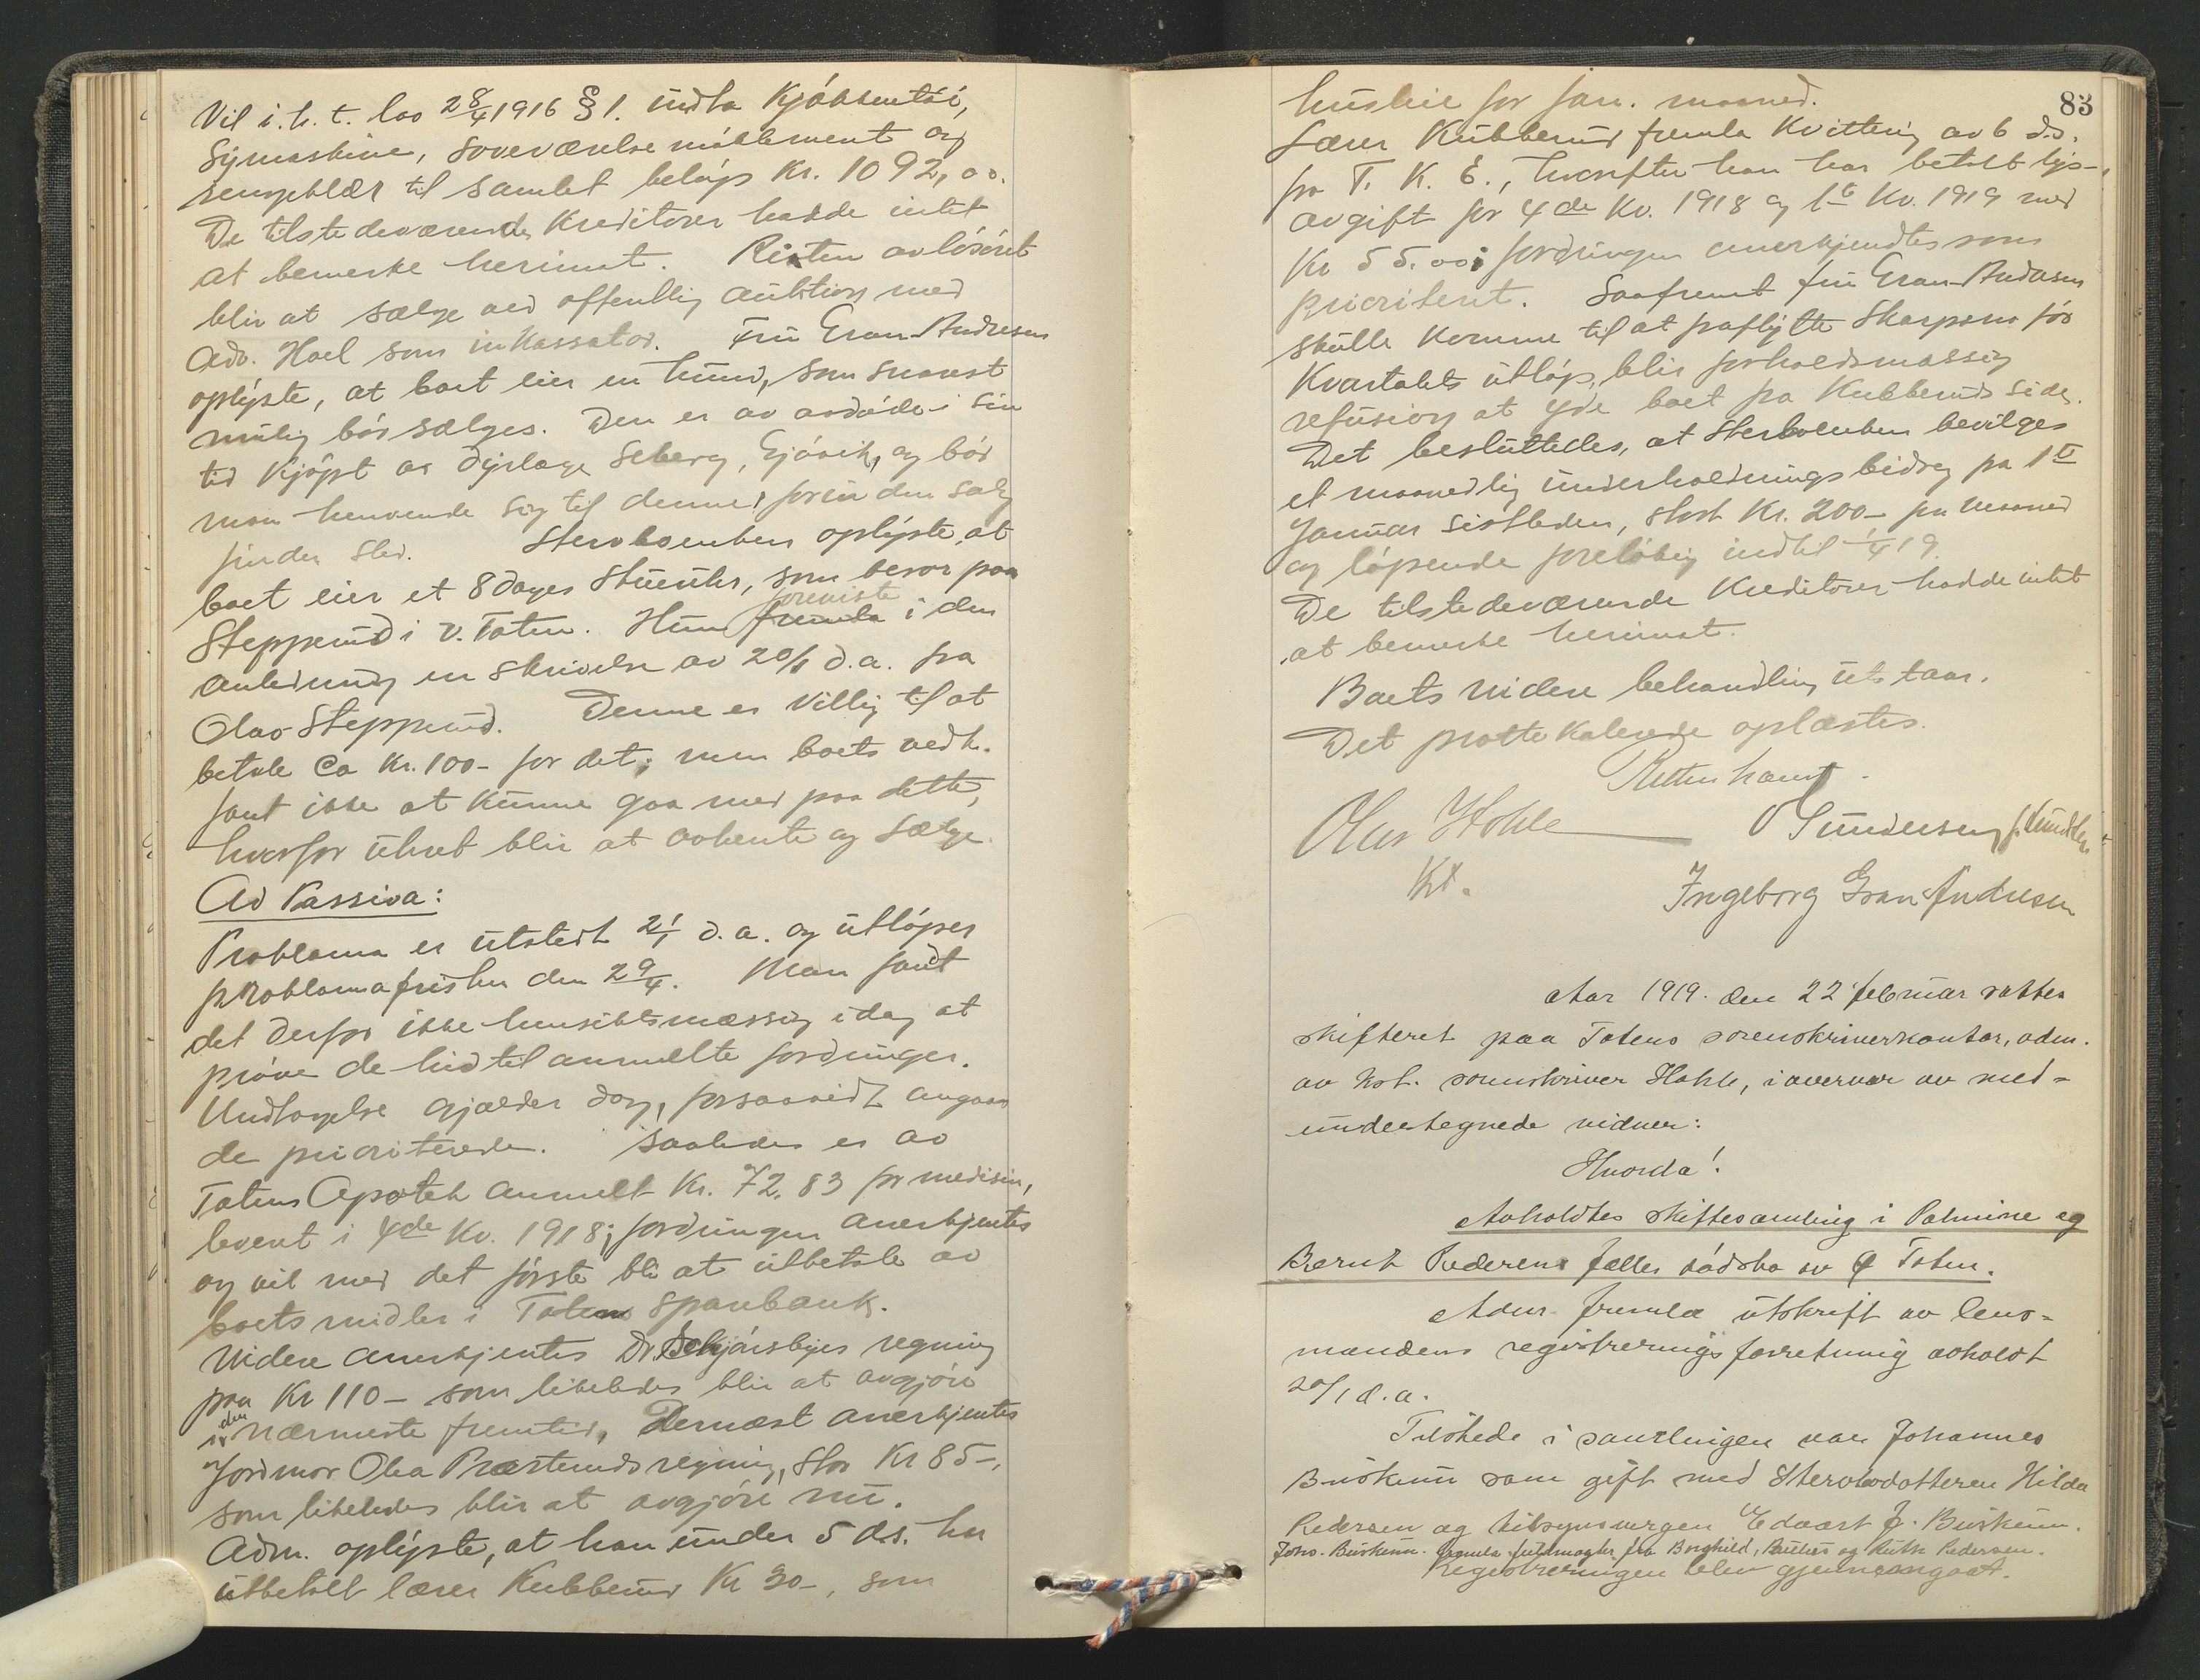 Vil i.h.t. lov 28/4 1916 § 1. indta Kjökkentöi,
Symaskine, Soveværelsemöblement og
sengeklær til samlet belöp Kr. 1092,00.
De tilstedeværende Kreditorer hadde intet
at bemerke herimot. Resten av lösöret
blir at sælge ved offentlig auktion med
Adv. Hoel som inkassator. Fru Gran-Andresen
oplyste, at boet eier en hund, som snarest
mulig bör sælges. Den er av avdöde i sin
tid Kjöpt av dyrlæge Seberg, Gjövik, og bör
man henvende sig til denne, forinden salg
finder sted. Stervboenken oplyste, at
boet eier et 8 dages Stueuhr, som beror paa
Stepperud i V. Toten. Hun foreviste fremla i den
anledning en skrivelse av 20/1 d.a. fra
Olav Stepperud. Denne er villig til at
betale ca Kr. 100- for det; men boets vedk.
fant ikke at kunne gaa med paa dette,
hvorfor uhret blir at avhente og sælge.
Ad Passiva:
Proklama er utstedt 21/1 d.a. og utlöper
proklamafristen den 29/4. Man fandt
det derfor ikke hensiktsmæssig idag at
pröve de hidtil anmeldte fordringer.
Undtagelse gjælder dog, forsaavidt angaar
de prioriterede. Saaledes er av
Totens Apotek anmeldt Kr. 72.83 for medisin,
levert i 4de Kv. 1918; fordringen anerkjentes
og vil med det förste bli at utbetale av
boets midler i Totens Sparebank.
Videre anerkjentes Dr. regning
paa Kr 110- som likeledes blir at avgjöre
i den nærmeste fremtid, Dernæst anerkjentes
Jordmor Olea Præsteruds regning, stor Kr 85-,
som likeledes blir at avgjöre nu.
Adm. oplyste, at han under 5 d.s. har
utbetalt lærer Kubberud Kr 30-, som
83
husleie for jan. maaned.
Lærer Kubberud fremla Kvittering av 6 d.s.
fra T. K. E., hvorefter han har betalt lys-
avgift for 4de Kv. 1918 og 1ste Kv. 1919 med
Kr 55.00; fordringen anerkjendtes som
prioritert. Saafremt fru Gran-Andresen
skulle komme til at fraflytte Skarpsno för
Kvartalets utlöp, blir forholdsmæssig
refusion at yde boet fra Kubberuds side.
Det besluttedes, at Stervboenken bevilges
et maanedlig underholdningsbidrag fra 1ste
Januar sistleden, stort Kr. 200- pr maaned
og löpende foreløbig indtil 1/4 19.
De tilstedeværende Kreditorer hadde intet
at bemerke herimot.
Boets videre behandling utstaar.
Det protokolerede oplæstes.
Retten hævet.
Olav Hohle
Kst.
O Gundersen
Ingeborg Gran Andresen
Aar 1919. den 22 februar sattes
skifteret paa Totens sorenskriverkontor, adm.
av kst. sorenskriver Hohle, i overvær av med-
undertegnede vidner:
Hvorda!
Avholdtes skiftesamling i Palmine og
Bernt Pedersens fælles dødsbo av Ø Toten.
Adm. fremla utskrift av lens-
mandens registreringsforretning avholdt
20/1 d.a.
Tilstede i samlingen var Johannes
Buskerud som gift med Stervbodatteren Hilda
Pedersen og tilsynsvergen Edvart J. Buskerud.
Johs. Buskerud fremla fuldmagter fra Borghild, og Ruth Pedersen.
Registreringen blev gjennemgaat.